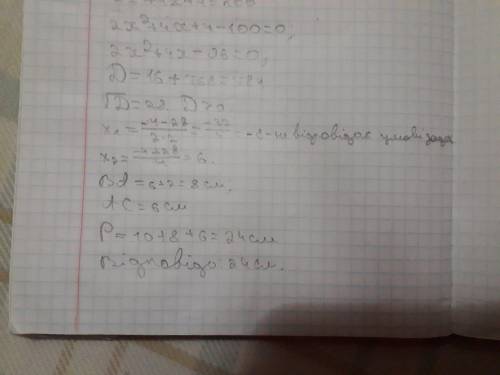 2x²+4x+4-100=0,
2x²+4x-96=0,
D=16+768=784
√D=28. D>0
x₁=(-4-28)/(2·2)=-32/4 =-8-не відповідає умові задачі
x₂=(-4+28)/4=6.
BA=6+2=8см,
AC=6см
P=10+8+6=24см
Відповідь: 24см.